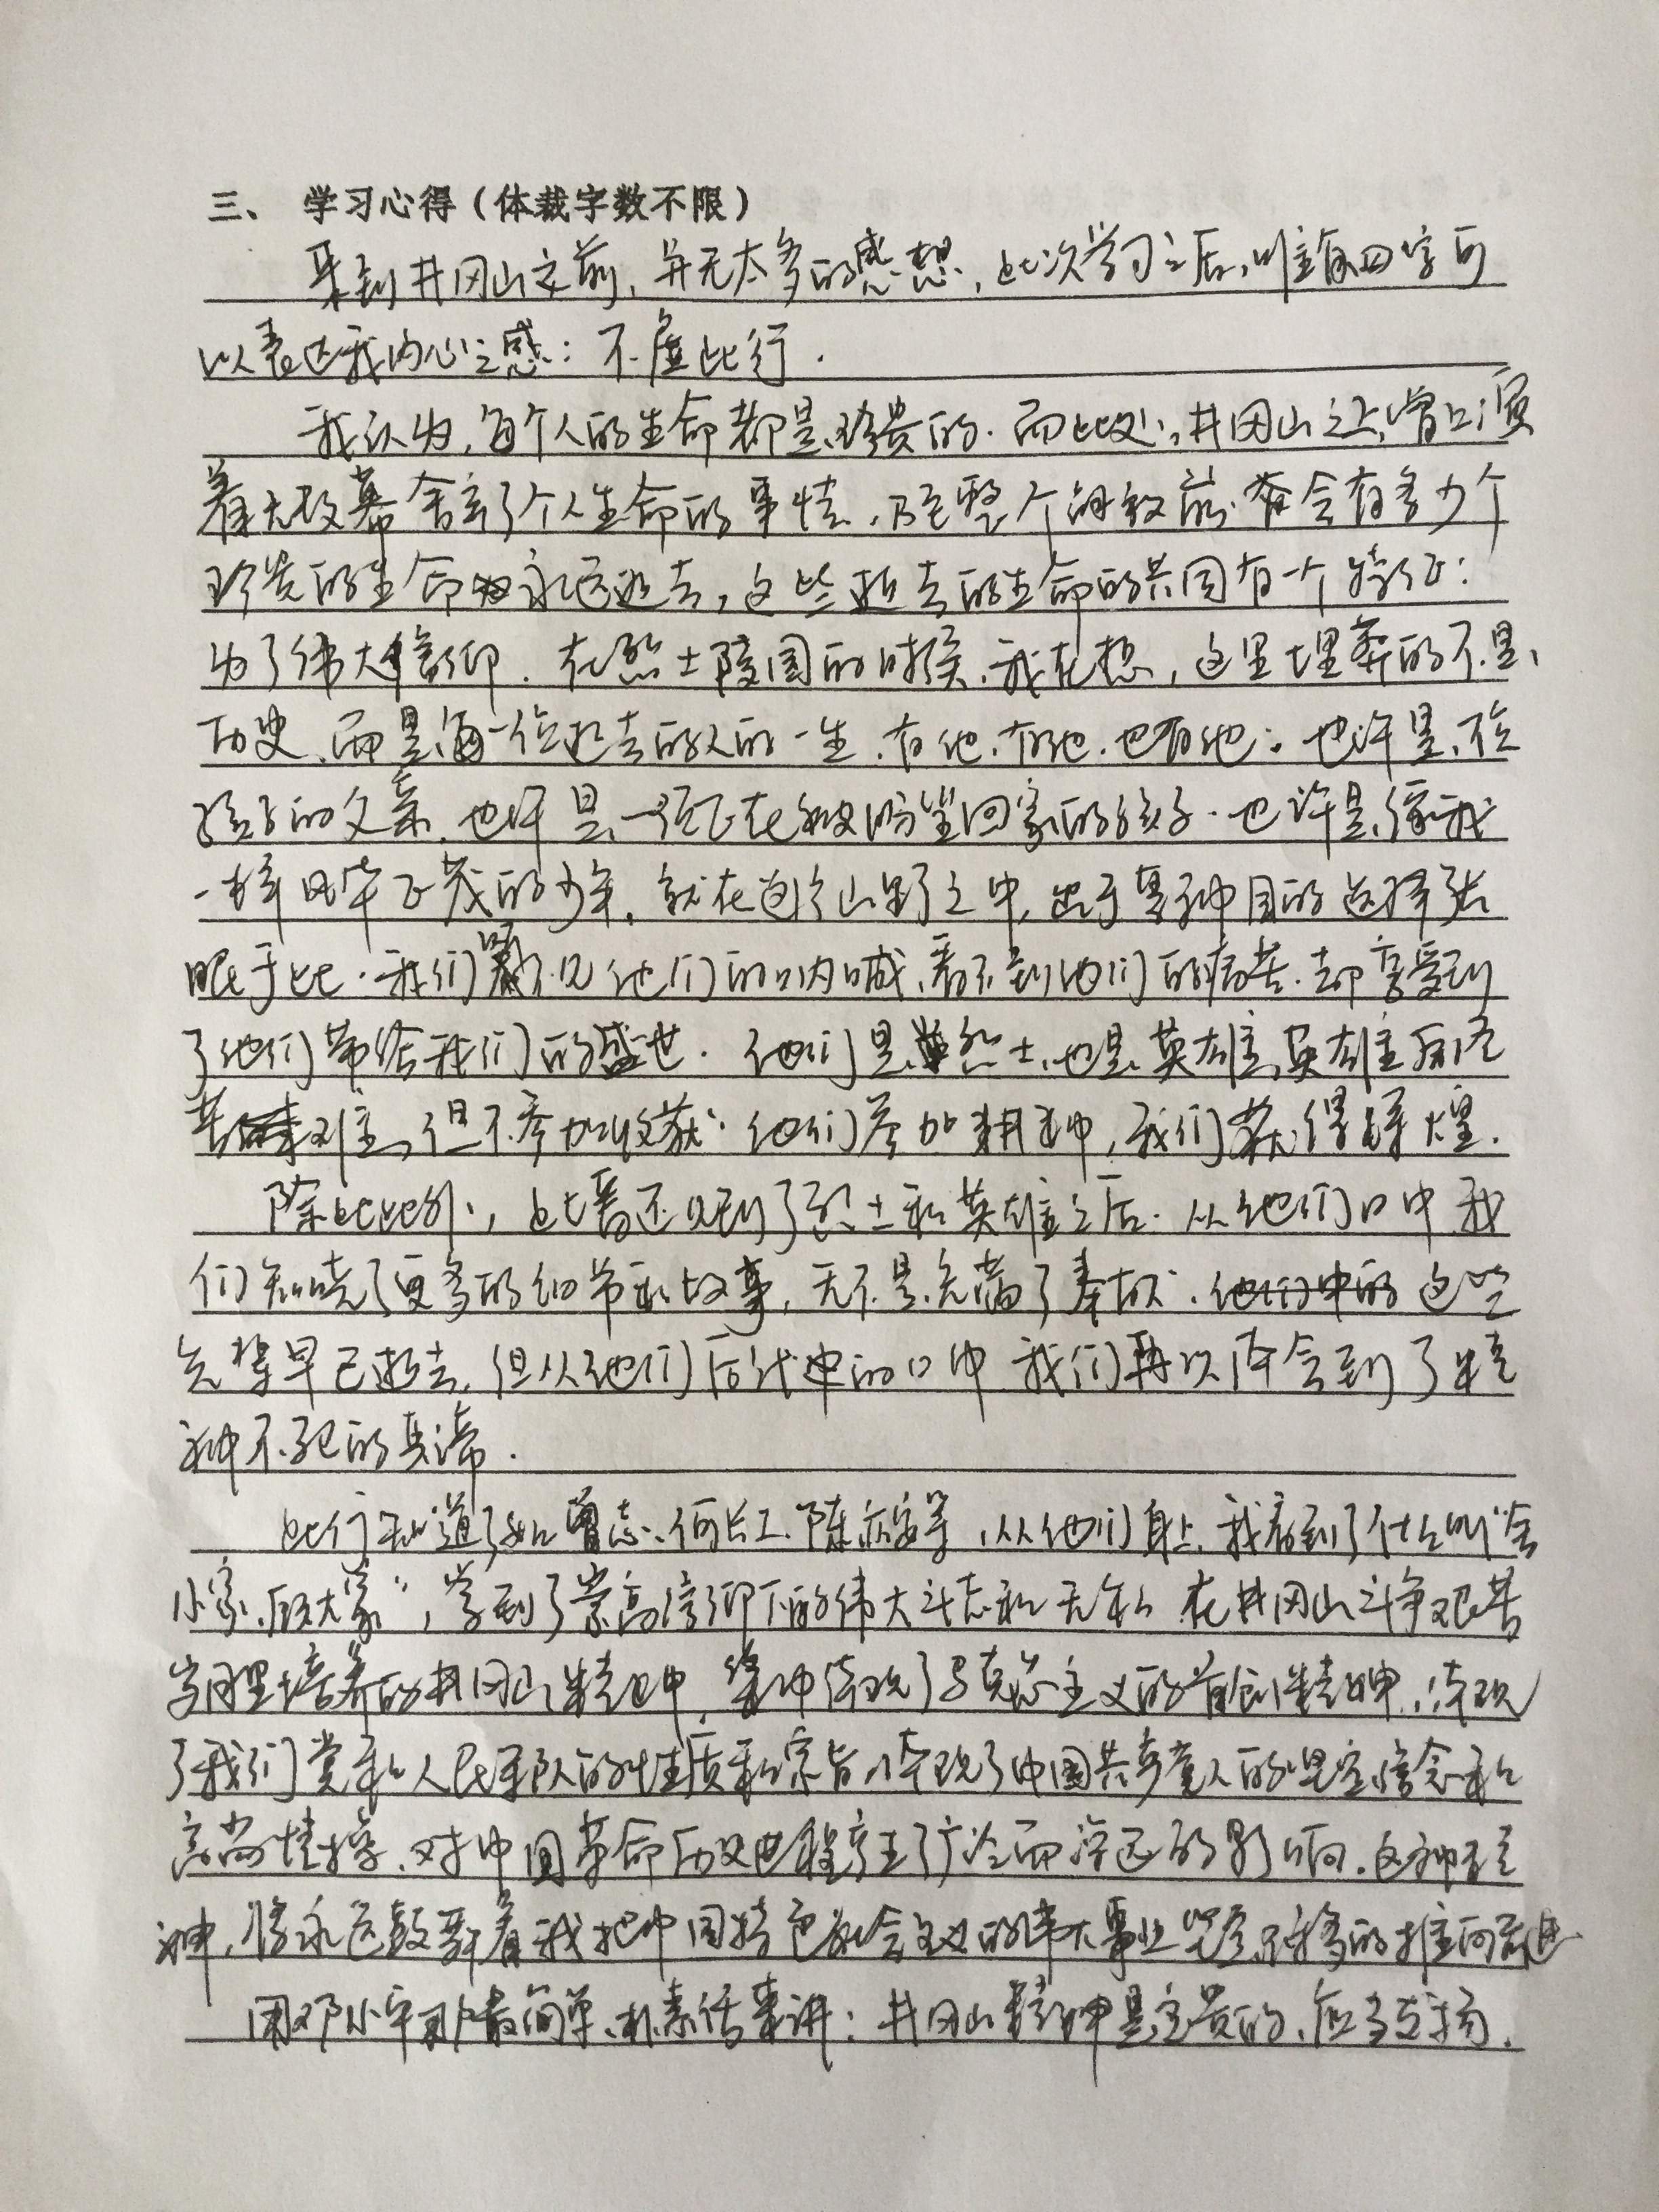 三、 学习心得（体裁字数不限）
来到井冈山之前，并无太多的感想，此次学习之后，唯有四字可
以表达我内心之感：不虚此行．
我认为，每个人的生命都是珍贵的．而此处，井冈山之上，曾上演
着无数幕舍弃了个人生命的事情．乃至整个解放前，会有多少个
珍贵的生命永远逝去，这些逝去的生命的共同有一个特征：
为了伟大信仰．在烈士陵园的时候，我在想，这里埋葬的不是
历史、而是每一位逝去的人的一生．有他．有他．也有他．也许是
孩子的父亲，也许是一位正在被盼望回家的孩子．也许是像我
一样风华正茂的少年，就在这山野之中，出于某种目的选择
眠于此．我们不见他们的呐喊，看不到他们的痛苦．却享受到
了他们带给我们的盛世．他们是烈士，也是英雄，英雄历尽
苦难，但不参加收获．他们参加耕种，我们获得辉煌．
除此此外，此番还见到了烈士和英雄之后．从他们口中我
们知晓了更多的细节和故事，无不是充满了奉献．这些
先辈早已逝去，但从他们后代的口中 我们再次体会到了精
神不死的真谛．
此行知道了如曾志、何长工、陈毅安等，从他们身上，我看到了什么叫“舍
小家．顾大家”，学到了崇高信仰下的伟大斗志和无私 在井冈山斗争艰苦
岁月里培养的井冈山精神，集中体现了马克思主义的首创精神，体现
了我们党和人民军队的性质和宗旨，体现了中国共产党人的坚定信念和
高尚情操、对中国革命历史进程产生了广泛而深远的影响．这种精
神，将永远鼓舞着我把中国特色社会主义的伟大事业坚定不移的推向前进
用邓小平最简单、朴素话来讲：井冈山精神是宝贵的、应当发扬．